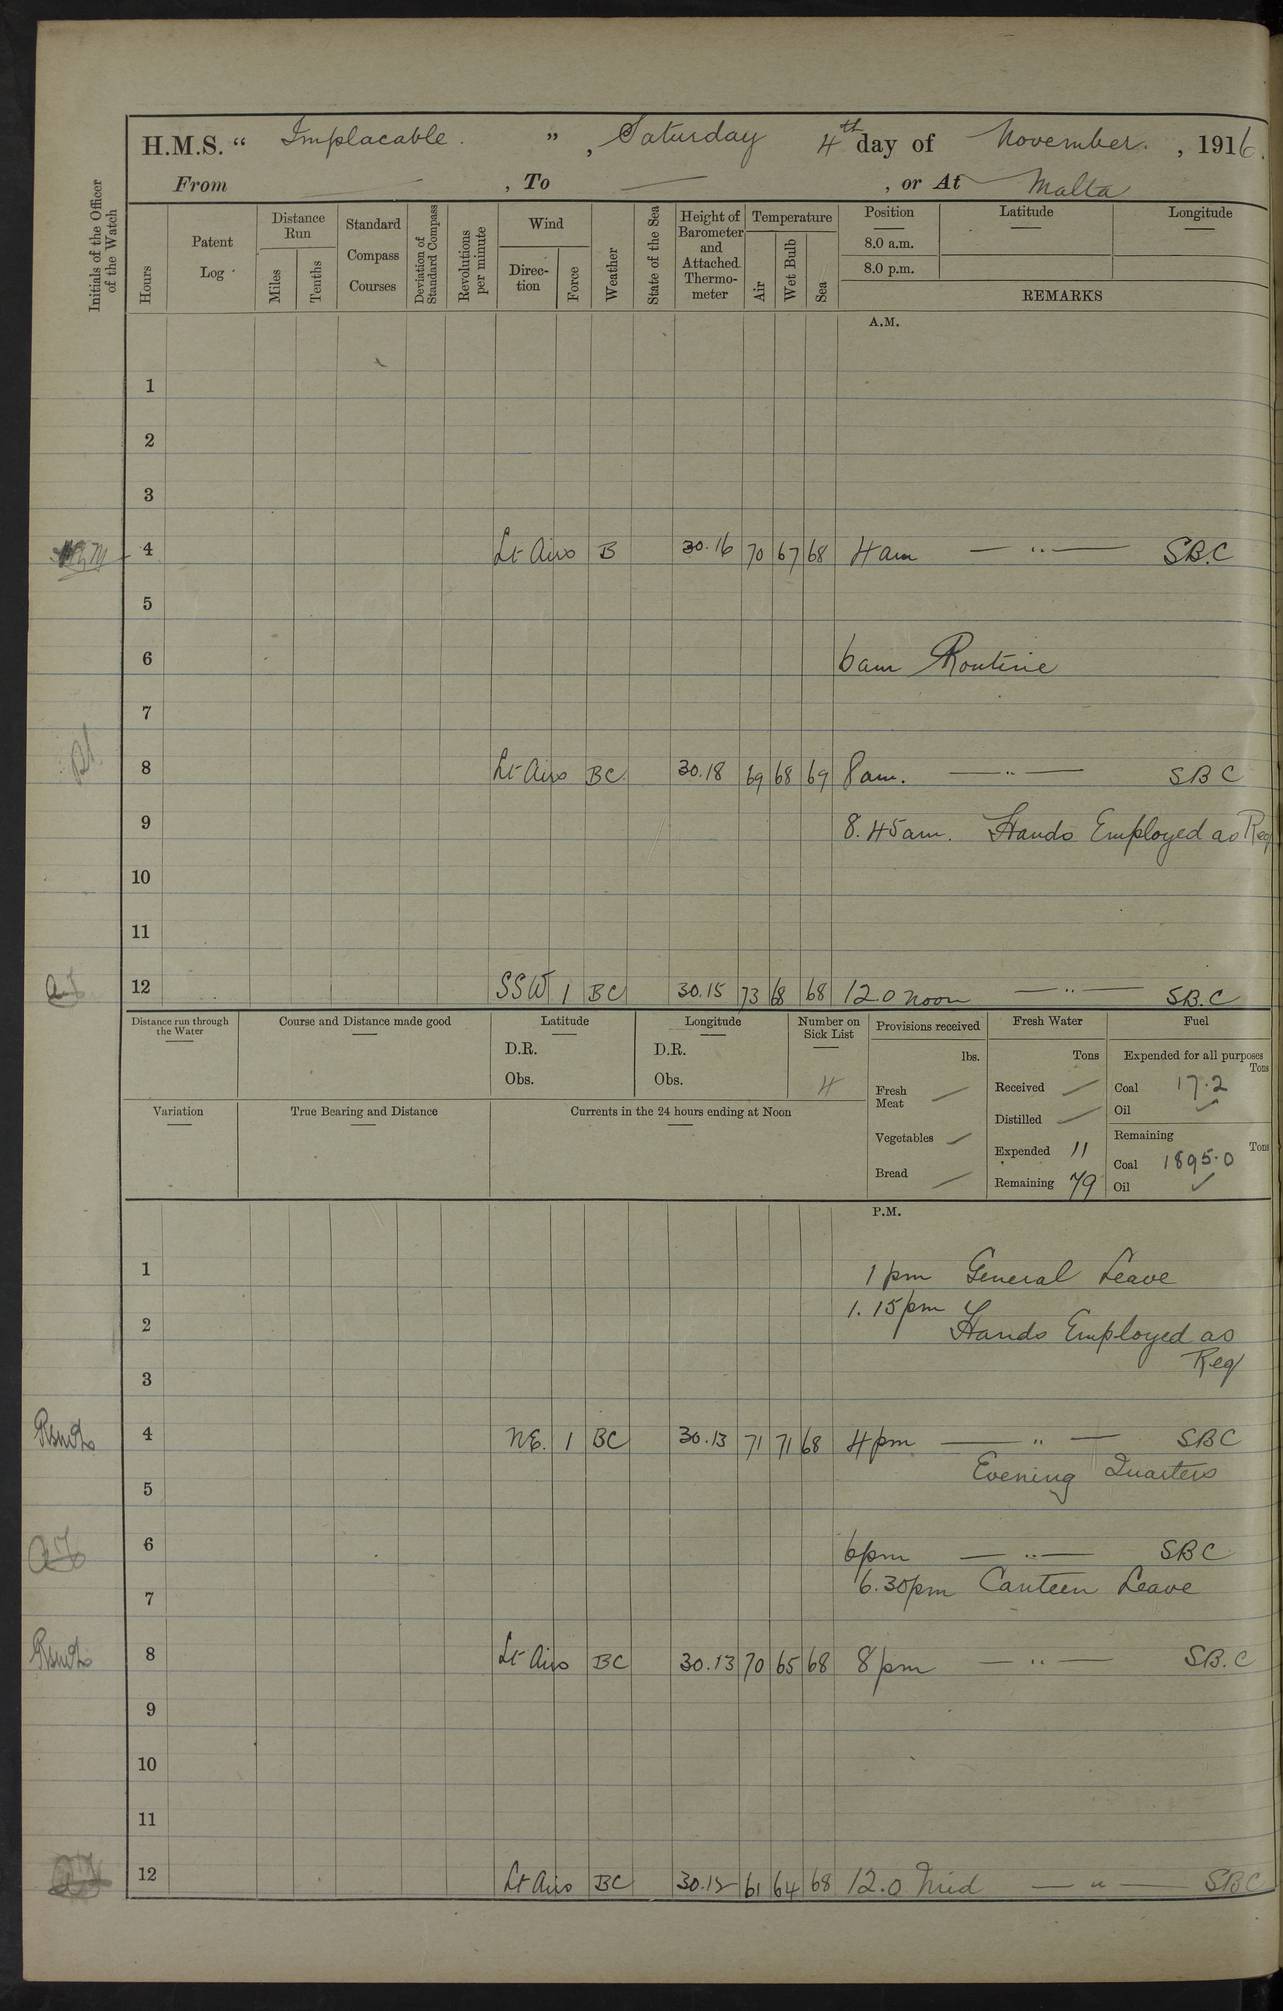 H.M.S. “ Implacable. ” , Saturday 4th day of November. , 1916.
From — , To — , or At Malta
Initials of the Officer of the Watch
Hours
Patent Log
Distance Run
Miles
Tenths
Standard Compass Courses
Deviation of Standard Compass
Revolutions per minute
Wind
Direc-tion
Force
Weather
State of the Sea
Height of Barometer and Attached Thermo-meter
Temperature
Air
Wet Bulb
Sea
Position
8.0 a.m.
8.0 p.m.
Latitude
Longitude
REMARKS
A.M.
1
2
3
4 Lt Airs B 30.16 70 67 68 4am — " — SB.C
5
6 6am Routine
7
8 Lt Airs BC 30.18 69 68 69 8am. — " — SBC
9 8.45am. Hands Employed as Req
10
11
12 SSW 1 BC 30.15 73 68 68 12.0 noon — " — SB.C
Distance run through the Water
Course and Distance made good
Latitude
D.R.
Obs.
Longitude
D.R.
Obs.
Number on Sick List
4
Provisions received
lbs.
Fresh Meat —
Vegetables —
Bread —
Fresh Water
Tons
Received —
Distilled —
Expended 11
Remaining 79
Fuel
Expended for all purposes
Tons
Coal 17.2
Oil ✓
Remaining
Tons
Coal 1895.0
Oil ✓
Variation
True Bearing and Distance
Currents in the 24 hours ending at Noon
P.M.
1 1pm General Leave
1.15pm
2 Hands Employed as
Req
3
4 NE. 1 BC 30.13 71 71 68 4pm — " — SBC
Evening Quarters
5
6 6pm — " — SBC
6.30pm Canteen Leave
7
8 Lt Airs BC 30.13 70 65 68 8pm — " — SB.C
9
10
11
12 Lt Airs BC 30.12 61 64 68 12.0 Mid — " — SBC